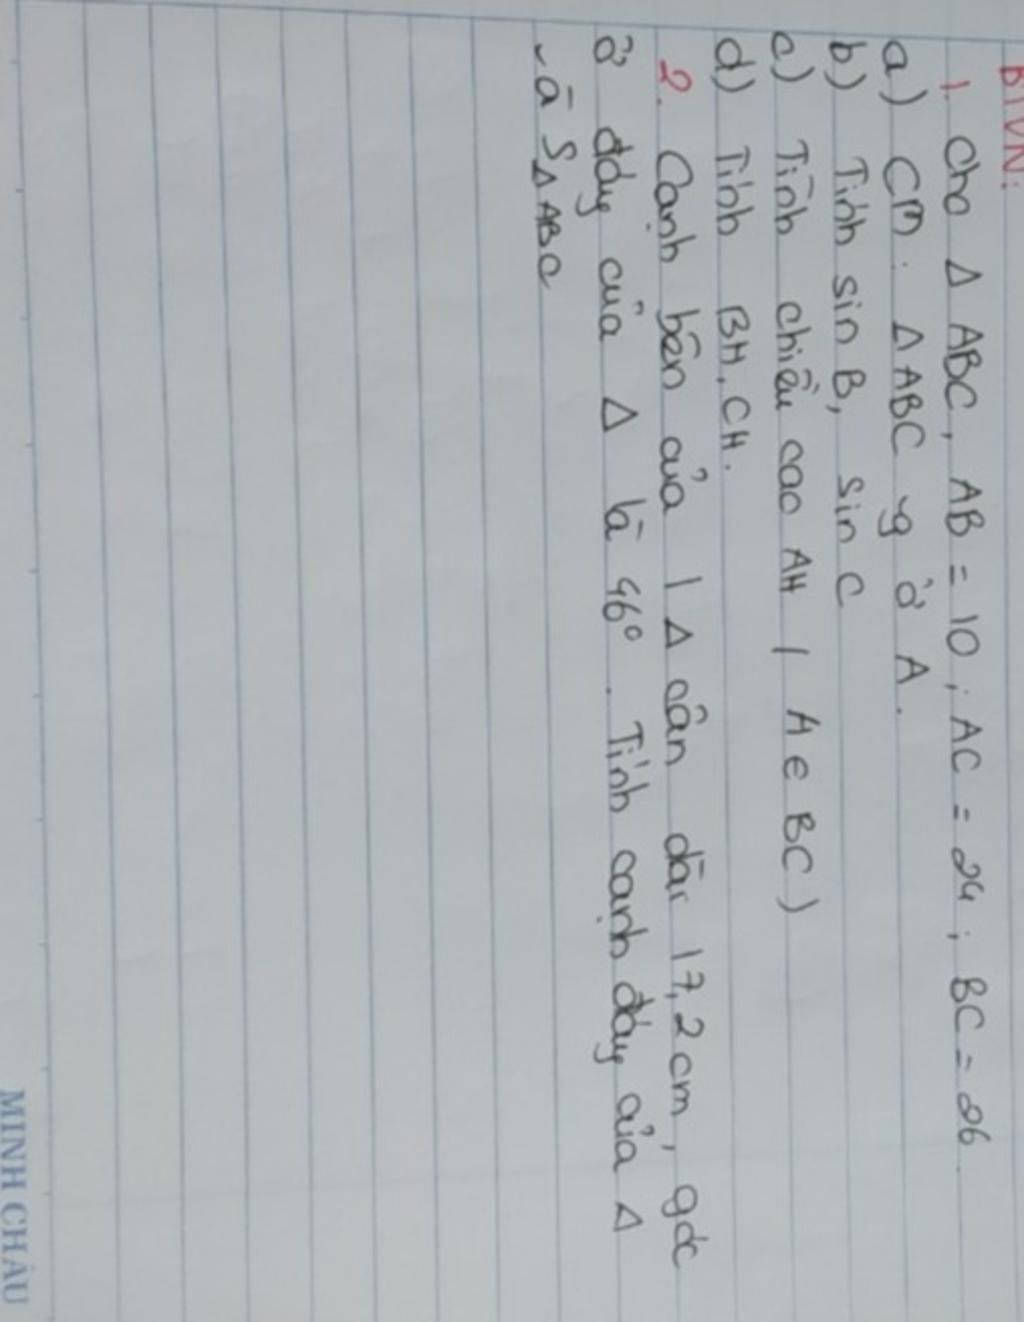 BTVN:
1. Cho Δ ABC, AB = 10 ; AC = 24 ; BC = 26.
a) CM: Δ ABC vg ở A.
b) Tính sin B, sin C
c) Tính chiều cao AH ( H ∈ BC )
d) Tính BH, CH.
2. Cạnh bên của 1 Δ cân dài 17,2 cm, góc
ở đáy của Δ là 46°. Tính cạnh đáy của Δ
và SΔABC
MINH CHÂU